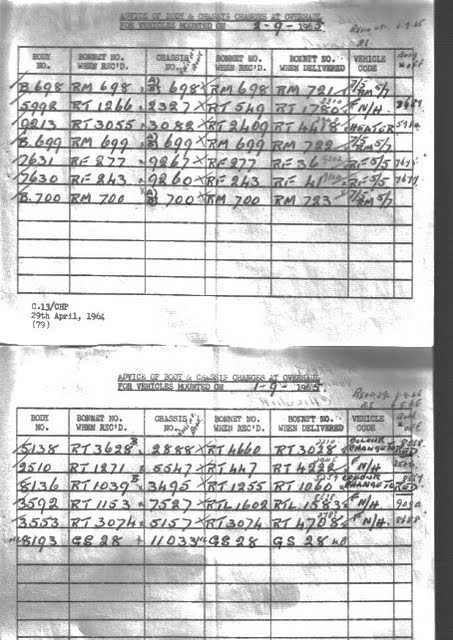 ADVICE OF BODY & CHASSIS CHANGES AT OVERHAUL
FOR VEHICLES MOUNTED ON 2-9-1965
BODY NO. BONNET NO. WHEN REC'D. CHASSIS NO. BONNET NO. WHEN REC'D. BONNET NO. WHEN DELIVERED VEHICLE CODE
B.698 RM 698 698 RM 698 RM 721 7/5 RM 5/7
5992 RT 1266 2327 RT 549 RT 1780 N/H
9213 RT 3055 3082 RT 2409 RT 4418 HEATER
B.699 RM 699 699 RM 699 RM 722 7/5 RM 5/7
7631 RF 277 9267 RF 277 RF 36 RF 5/5
7630 RF 243 9260 RF 243 RF 41 RF 5/5
B.700 RM 700 700 RM 700 RM 723 7/5 RM 5/7
C.13/CHP
29th April, 1964
(79)
ADVICE OF BODY & CHASSIS CHANGES AT OVERHAUL
FOR VEHICLES MOUNTED ON 1-9-1965
BODY NO. BONNET NO. WHEN REC'D. CHASSIS NO. BONNET NO. WHEN REC'D. BONNET NO. WHEN DELIVERED VEHICLE CODE
5138 RT 3628 2888 RT 4660 RT 3028 COLOUR CHANGE TO RED
2510 RT 1271 5547 RT 447 RT 4222 N/H
8136 RT 1039 3495 RT 1255 RT 1060 COLOUR CHANGE TO RED
3592 RT 1153 7527 RTL 1602 RTL 1583 N/H
3553 RT 3074 5157 RT 3074 RT 4708 N/H
8193 GS 28 11033 GS 28 GS 28